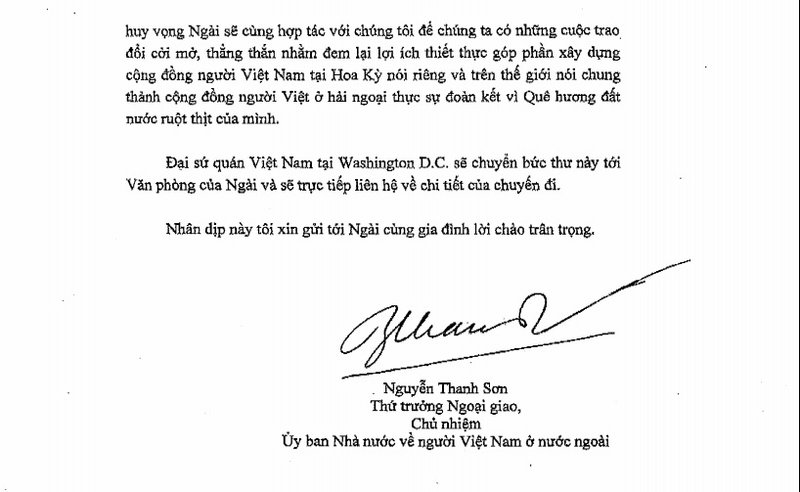 huy vọng Ngài sẽ cùng hợp tác với chúng tôi để chúng ta có những cuộc trao
đổi cởi mở, thẳng thắn nhằm đem lại lợi ích thiết thực góp phần xây dựng
cộng đồng người Việt Nam tại Hoa Kỳ nói riêng và trên thế giới nói chung
thành cộng đồng người Việt ở hải ngoại thực sự đoàn kết vì Quê hương đất
nước ruột thịt của mình.
Đại sứ quán Việt Nam tại Washington D.C. sẽ chuyển bức thư này tới
Văn phòng của Ngài và sẽ trực tiếp liên hệ về chi tiết của chuyến đi.
Nhân dịp này tôi xin gửi tới Ngài cùng gia đình lời chào trân trọng.
Nguyễn Thanh Sơn
Thứ trưởng Ngoại giao,
Chủ nhiệm
Ủy ban Nhà nước về người Việt Nam ở nước ngoài